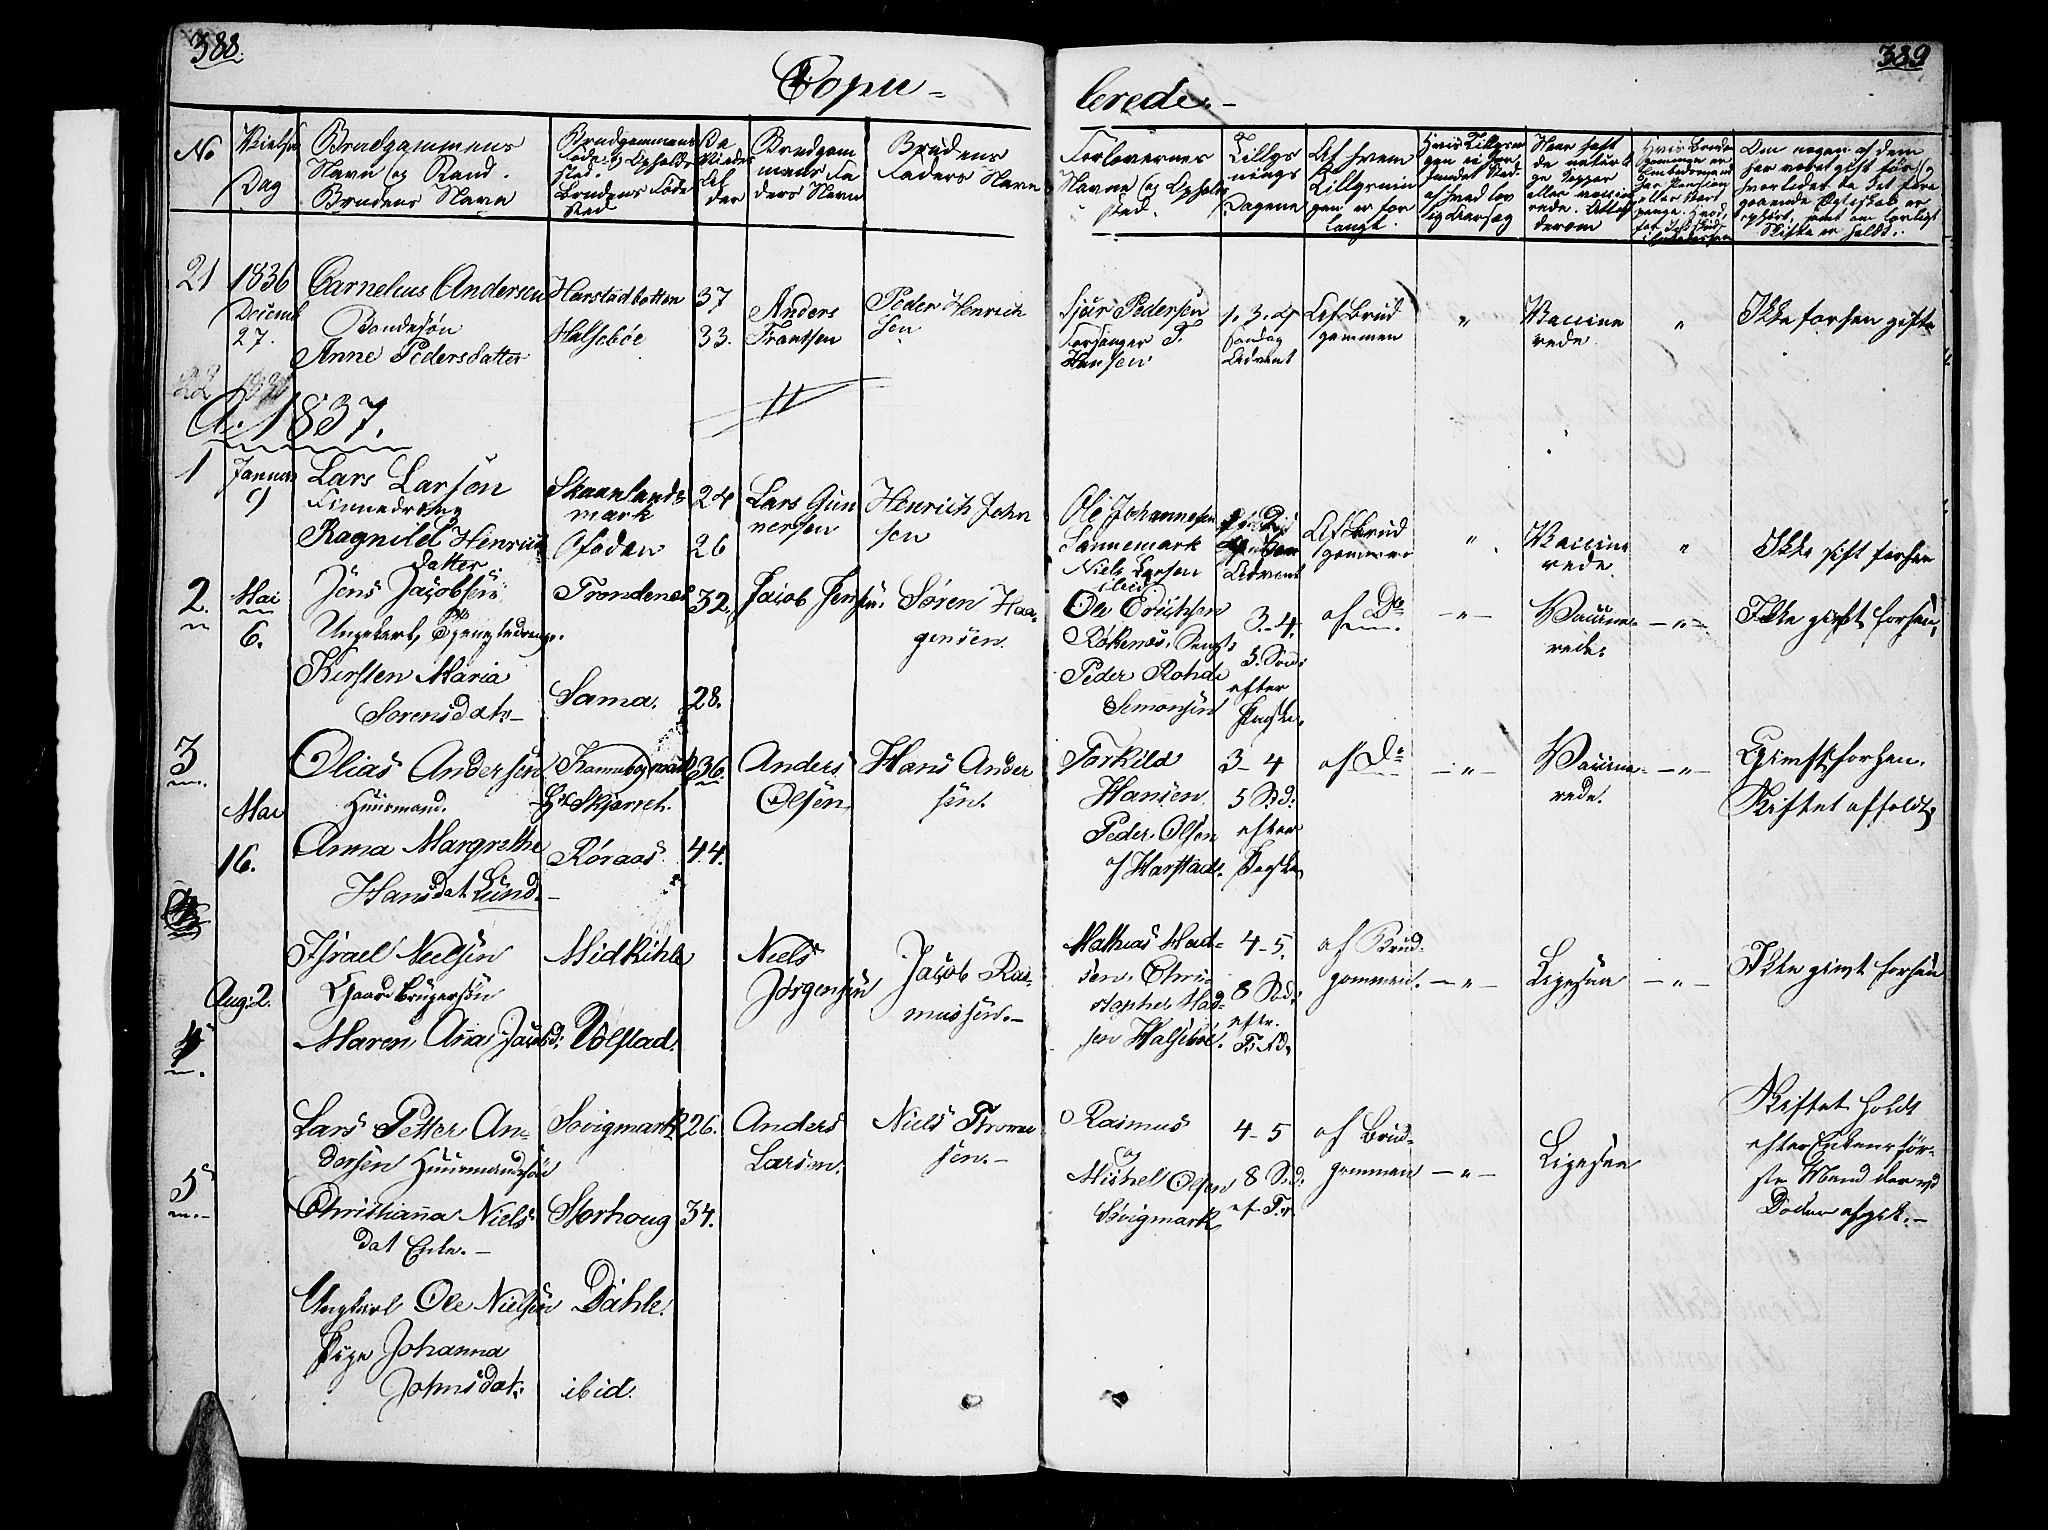 388.
389
Copu-
lerede.-
No
Vielses
Dag
Brudgammens
Navn og Stand.
Brudens Navn
Brudgammens
Føde og Opholds
sted.
Brudens Føde
Sted
De
Viedes
Al
der
Brudgam
mens Fa
ders Navn
Brudens
Faders Navn
Forlovernes
Navne og Opholds
sted.
Tillys
nings
Dagene
Af hvem
Tillysnin
gen er for
langt.
Naar haft
de naturli
ge Kopper
eller vacci
rede. Attest
derom
Om nogen af dem
har været gift før og
hvorledes da det fore
gaaende Ægteskab er
ophørt, samt om lovligt
Skifte er holdt.
21
1836
Decemb
27.
Cornelius Andersen
Bondesøn
Anne Pedersdatter
Harstadbotten
Halsebøe
37
33.
Anders
Frantsen
Peder Henrich
sen
Siver Pedersen
Forsanger T.
Hansen
1. 3. 4
Søndag
Advent
Af Brud
gommen
"
Vaccine
rede
"
Ikke forhen gifte
22
A. 1837.
1
Januar
9
Lars Larsen
Finnedreng
Ragnild Henrichs
datter
Skaanlands
mark
Ofoden
24
26
Lars Gun
nersen
Henrich John
sen
Ole Johannesen
Sannemark
Niels Larsen
ibid
Advent
Af Brud
gommen
"
Vaccine
rede
"
Ikke gift forhen
2.
Mai
6.
Jens Jacobsen
Ungekarl, og Tjenestedreng.
Kirsten Maria
Sorensdatr-
Trondenes
Sama.
32.
28.
Jacob Jensen.
Søren Haa-
gensen.
Ole Erichsen
Røkenes,
Peder Rohde
Simonsen
3.-4.
5. Sønd:
efter
Paaske.
af Do
- " -
Vaccine-
rede.
- " -
Ikke gift forhen,
3
Mai
16.
Olias Andersen
Huusmand.
Anna Margrethe
Hansdat. Lund.-
Kannebogmark
Skjærret.
Røraas
36.
44.
Anders
Olsen
Hans Ander
sen.
Torkild
Hansen
Peder Olsen
af Harstad.
3-4
5 Sd.
efter
Paaske
af Do
- " -
Vaccine-
rede.
- " -
Gimft forhen.
Skiftet afholdt.
4
Aug: 2.
Israel Nielsen
Gaardbrugersøn
Maren Ana Jacobsd:
Midkihle
Volstad.
Niels
Jørgensen
Jacob Ras-
mussen.-
Mathias Mad-
sen, Chri-
stopher Mad-
sen Halsebøe.
4-5.
8 Sd.
eftr.
Tr. Sd.
af Brud-
gommen.
- " -
Ligesaa
- " -
Ikke givt forhen
5
Lars Petter An-
dersen Huusmandssøn
Christianna Niels
dat Enke.-
Sørvigmark
Storhoug
26.
34.
Anders
Larsen.
Niels Thom
sen.-
Rasmus
og
Michel Olsen
Sørvigmark
4-5
8 Sd.
ef. Tr.
af Brud-
gommen
- " -
Ligesaa
Skiftet holdt
efter Enkens før-
ste Mand der ved
Døden afgik.-
Ungkarl Ole Nielsen
Pige Johanna
Johnsdat.
Dahle.
ibid.